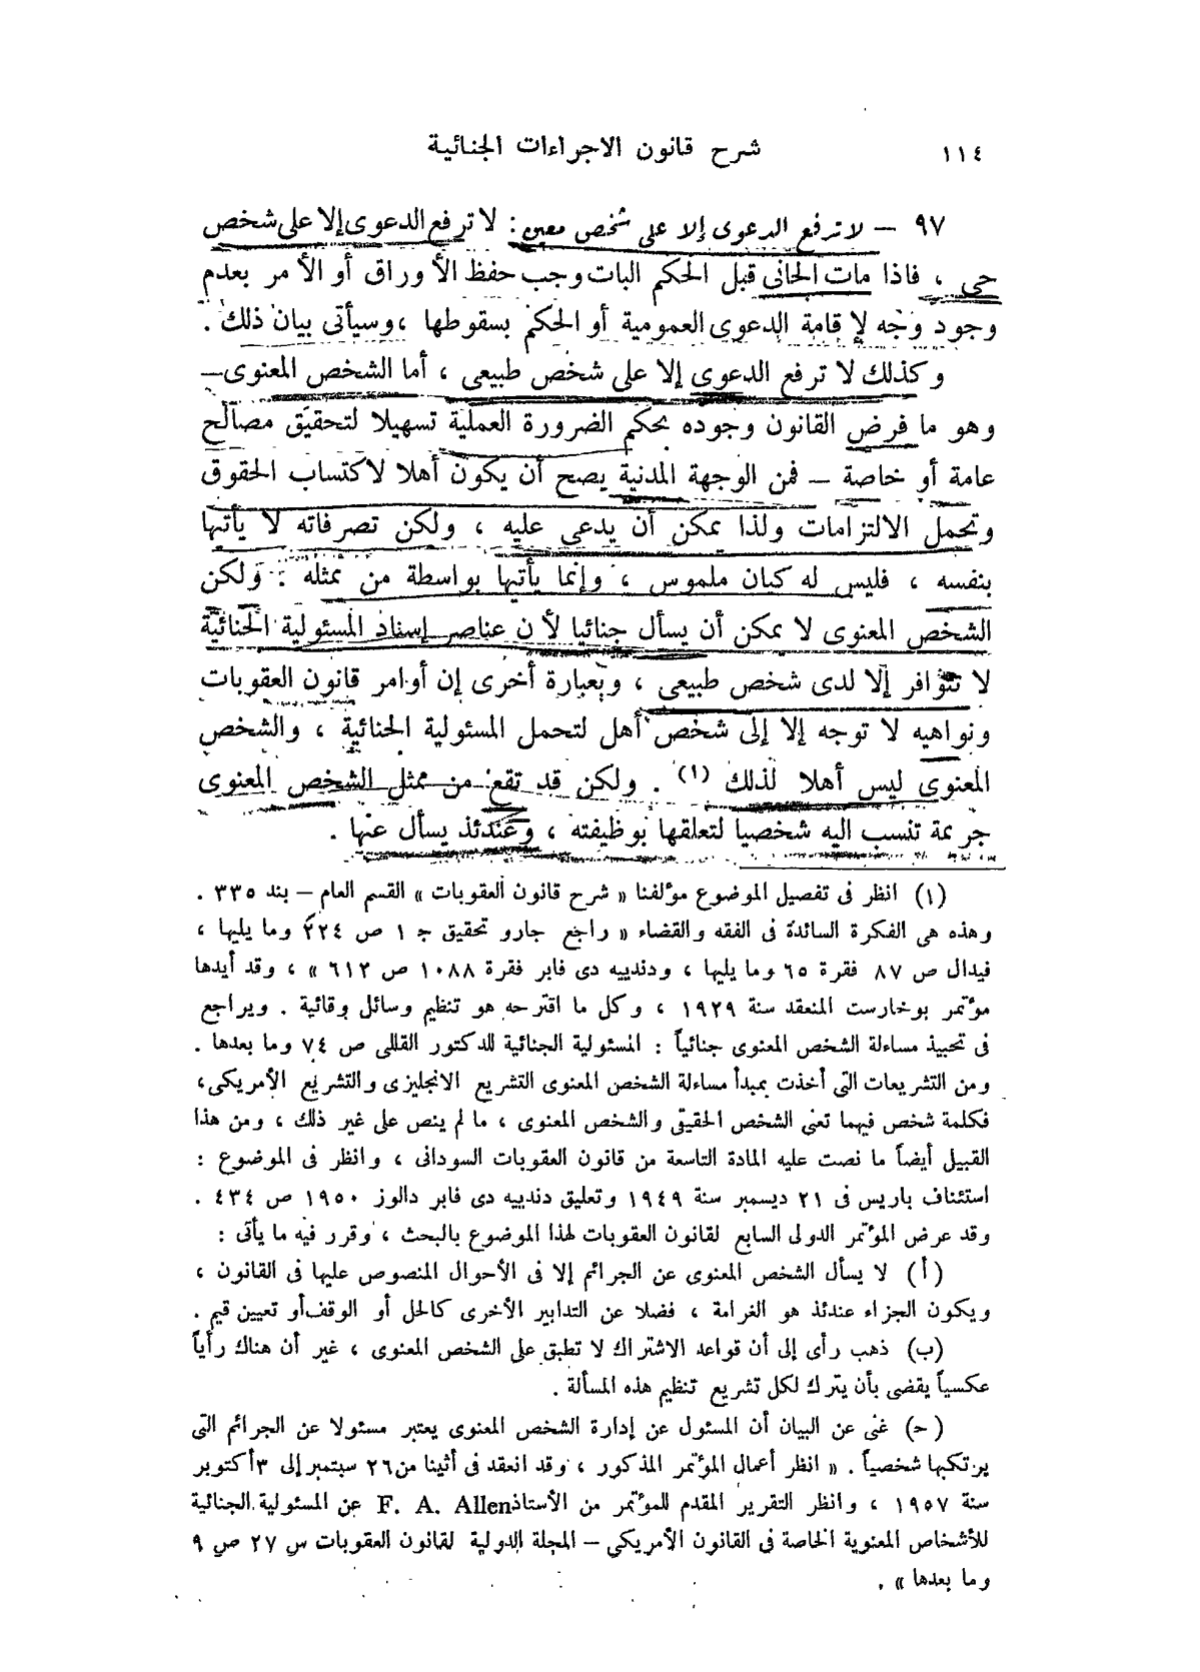 ١١٤ شرح قانون الاجراءات الجنائية
٩٧ — لا ترفع الدعوى إلا على شخص معين : لا ترفع الدعوى إلا على شخص
حى ، فاذا مات الجانى قبل الحكم البات وجب حفظ الأوراق أو الأمر بعدم
وجود وجه لإقامة الدعوى العمومية أو الحكم بسقوطها ، وسيأتى بيان ذلك .
وكذلك لا ترفع الدعوى إلا على شخص طبيعى ، أما الشخص المعنوى —
وهو ما فرض القانون وجوده بحكم الضرورة العملية تسهيلا لتحقيق مصالح
عامة أو خاصة — فمن الوجهة المدنية يصح أن يكون أهلا لاكتساب الحقوق
وتحمل الالتزامات ولذا يمكن أن يدعى عليه ، ولكن تصرفاته لا يأتيها
بنفسه ، فليس له كيان ملموس ، وإنما يأتيها بواسطة من يمثله . ولكن
الشخص المعنوى لا يمكن أن يسأل جنائيا لأن عناصر إسناد المسئولية الجنائية
لا تتوافر إلا لدى شخص طبيعى ، وبعبارة أخرى إن أوامر قانون العقوبات
ونواهيه لا توجه إلا إلى شخص أهل لتحمل المسئولية الجنائية ، والشخص
المعنوى ليس أهلا لذلك (١) . ولكن قد تقع من ممثل الشخص المعنوى
جريمة تنسب اليه شخصيا لتعلقها بوظيفته ، وعندئذ يسأل عنها .
(١) انظر فى تفصيل الموضوع مؤلفنا « شرح قانون العقوبات » القسم العام — بند ٣٣٥ .
وهذه هى الفكرة السائدة فى الفقه والقضاء « راجع جارو تحقيق ج ١ ص ٢٢٤ وما يليها ،
فيدال ص ٨٧ فقرة ٦٥ وما يليها ، ودندييه دى فابر فقرة ١٠٨٨ ص ٦١٣ » ، وقد أيدها
مؤتمر بوخارست المنعقد سنة ١٩٢٩ ، وكل ما اقترحه هو تنظيم وسائل وقائية . ويراجع
فى تحبيذ مساءلة الشخص المعنوى جنائياً : المسئولية الجنائية للدكتور القللى ص ٧٤ وما بعدها .
ومن التشريعات التى أخذت بمبدأ مساءلة الشخص المعنوى التشريع الانجليزى والتشريع الأمريكى،
فكلمة شخص فيهما تعنى الشخص الحقيقى والشخص المعنوى ، ما لم ينص على غير ذلك ، ومن هذا
القبيل أيضاً ما نصت عليه المادة التاسعة من قانون العقوبات السودانى ، وانظر فى الموضوع :
استئناف باريس فى ٢١ ديسمبر سنة ١٩٤٩ وتعليق دندييه دى فابر دالوز ١٩٥٠ ص ٤٣٤ .
وقد عرض المؤتمر الدولى السابع لقانون العقوبات لهذا الموضوع بالبحث ، وقرر فيه ما يأتى :
(أ) لا يسأل الشخص المعنوى عن الجرائم إلا فى الأحوال المنصوص عليها فى القانون ،
ويكون الجزاء عندئذ هو الغرامة ، فضلا عن التدابير الأخرى كالحل أو الوقف أو تعيين قيم .
(ب) ذهب رأى إلى أن قواعد الاشتراك لا تطبق على الشخص المعنوى ، غير أن هناك رأياً
عكسياً يقضى بأن يترك لكل تشريع تنظيم هذه المسألة .
(ح) غنى عن البيان أن المسئول عن إدارة الشخص المعنوى يعتبر مسئولا عن الجرائم التى
يرتكبها شخصياً . « انظر أعمال المؤتمر المذكور ، وقد انعقد فى أثينا من ٢٦ سبتمبر إلى ٣ أكتوبر
سنة ١٩٥٧ ، وانظر التقرير المقدم للمؤتمر من الأستاذ F. A. Allen عن المسئولية الجنائية
للأشخاص المعنوية الخاصة فى القانون الأمريكى — المجلة الدولية لقانون العقوبات س ٢٧ ص ٩
وما بعدها » .